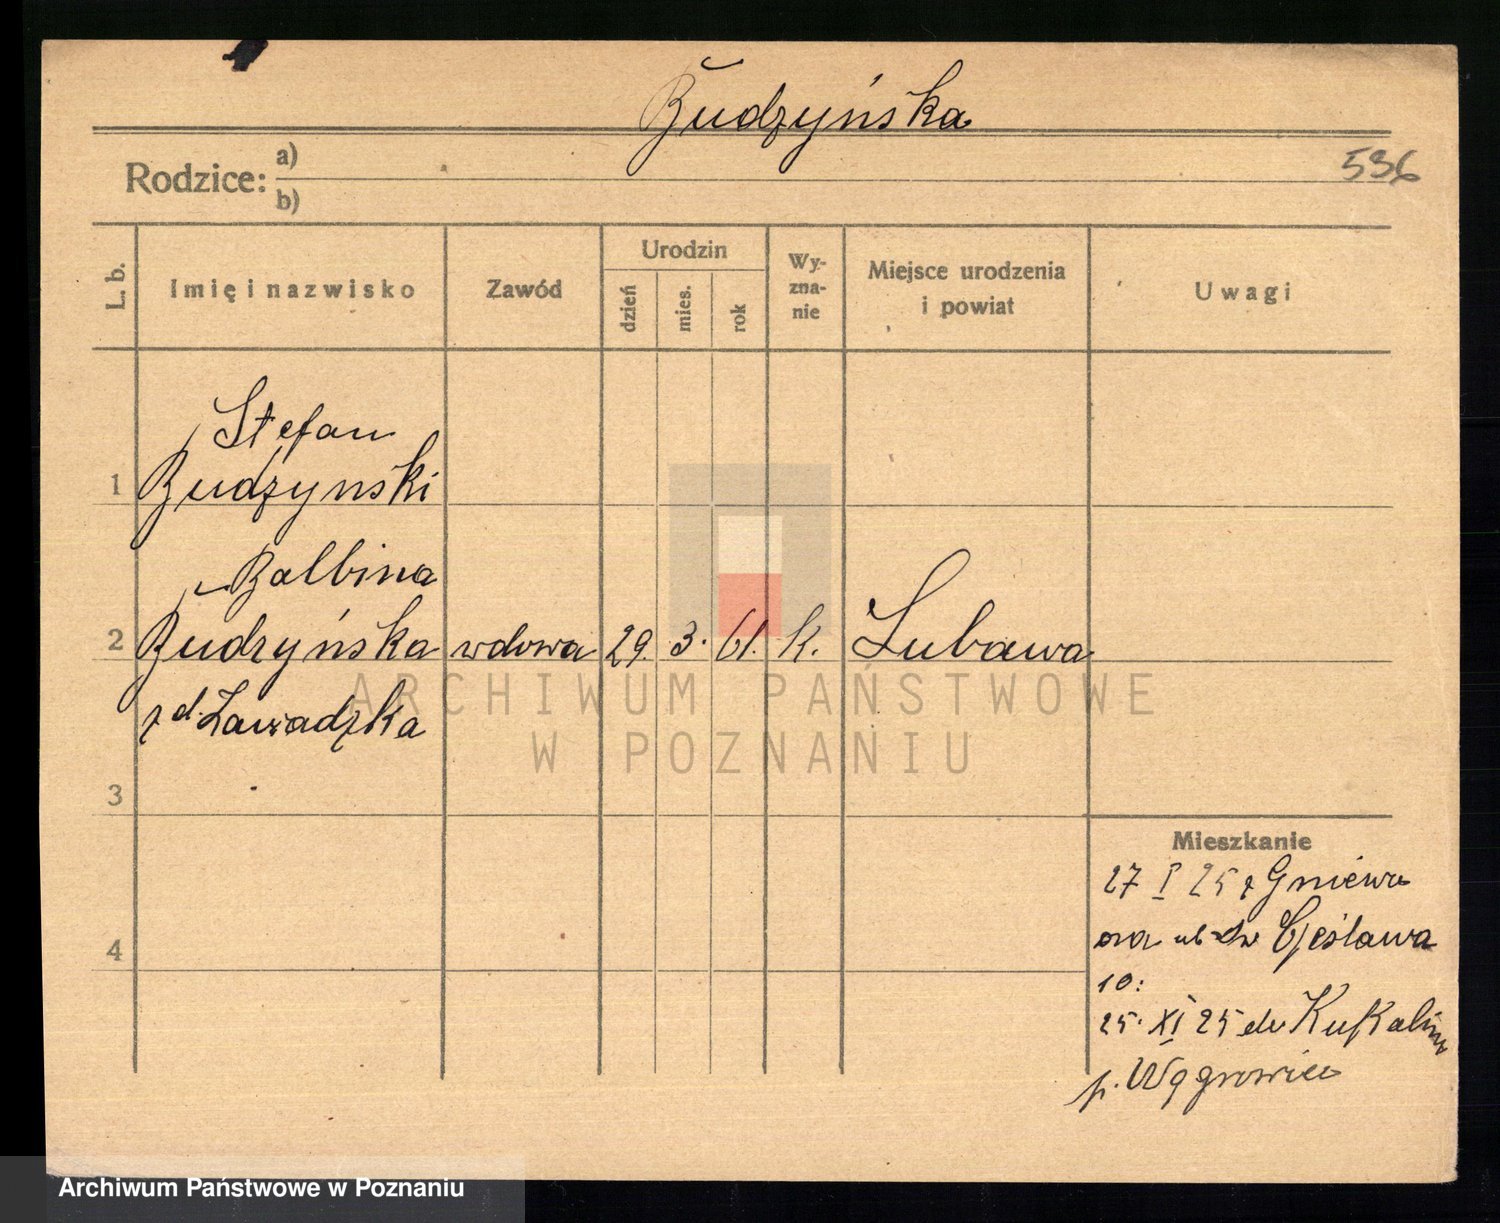 Budzyńska
536
Rodzice: a)
b)
L. b.
Imię i nazwisko
Zawód
Urodzin
dzień
mies.
rok
Wy-
zna-
nie
Miejsce urodzenia
i powiat
Uwagi
Stefan
1 Budzynski
Balbina
2 Budzyńska wdowa 29. 3. 61. K. Lubawa
z d. Zawadzka
3
4
Mieszkanie
27 I 25 z Gniewu
na ul Czesława
10:
25. XI 25 do
p. Wągrowiec
ARCHIWUM PAŃSTWOWE
W POZNANIU
Archiwum Państwowe w Poznaniu